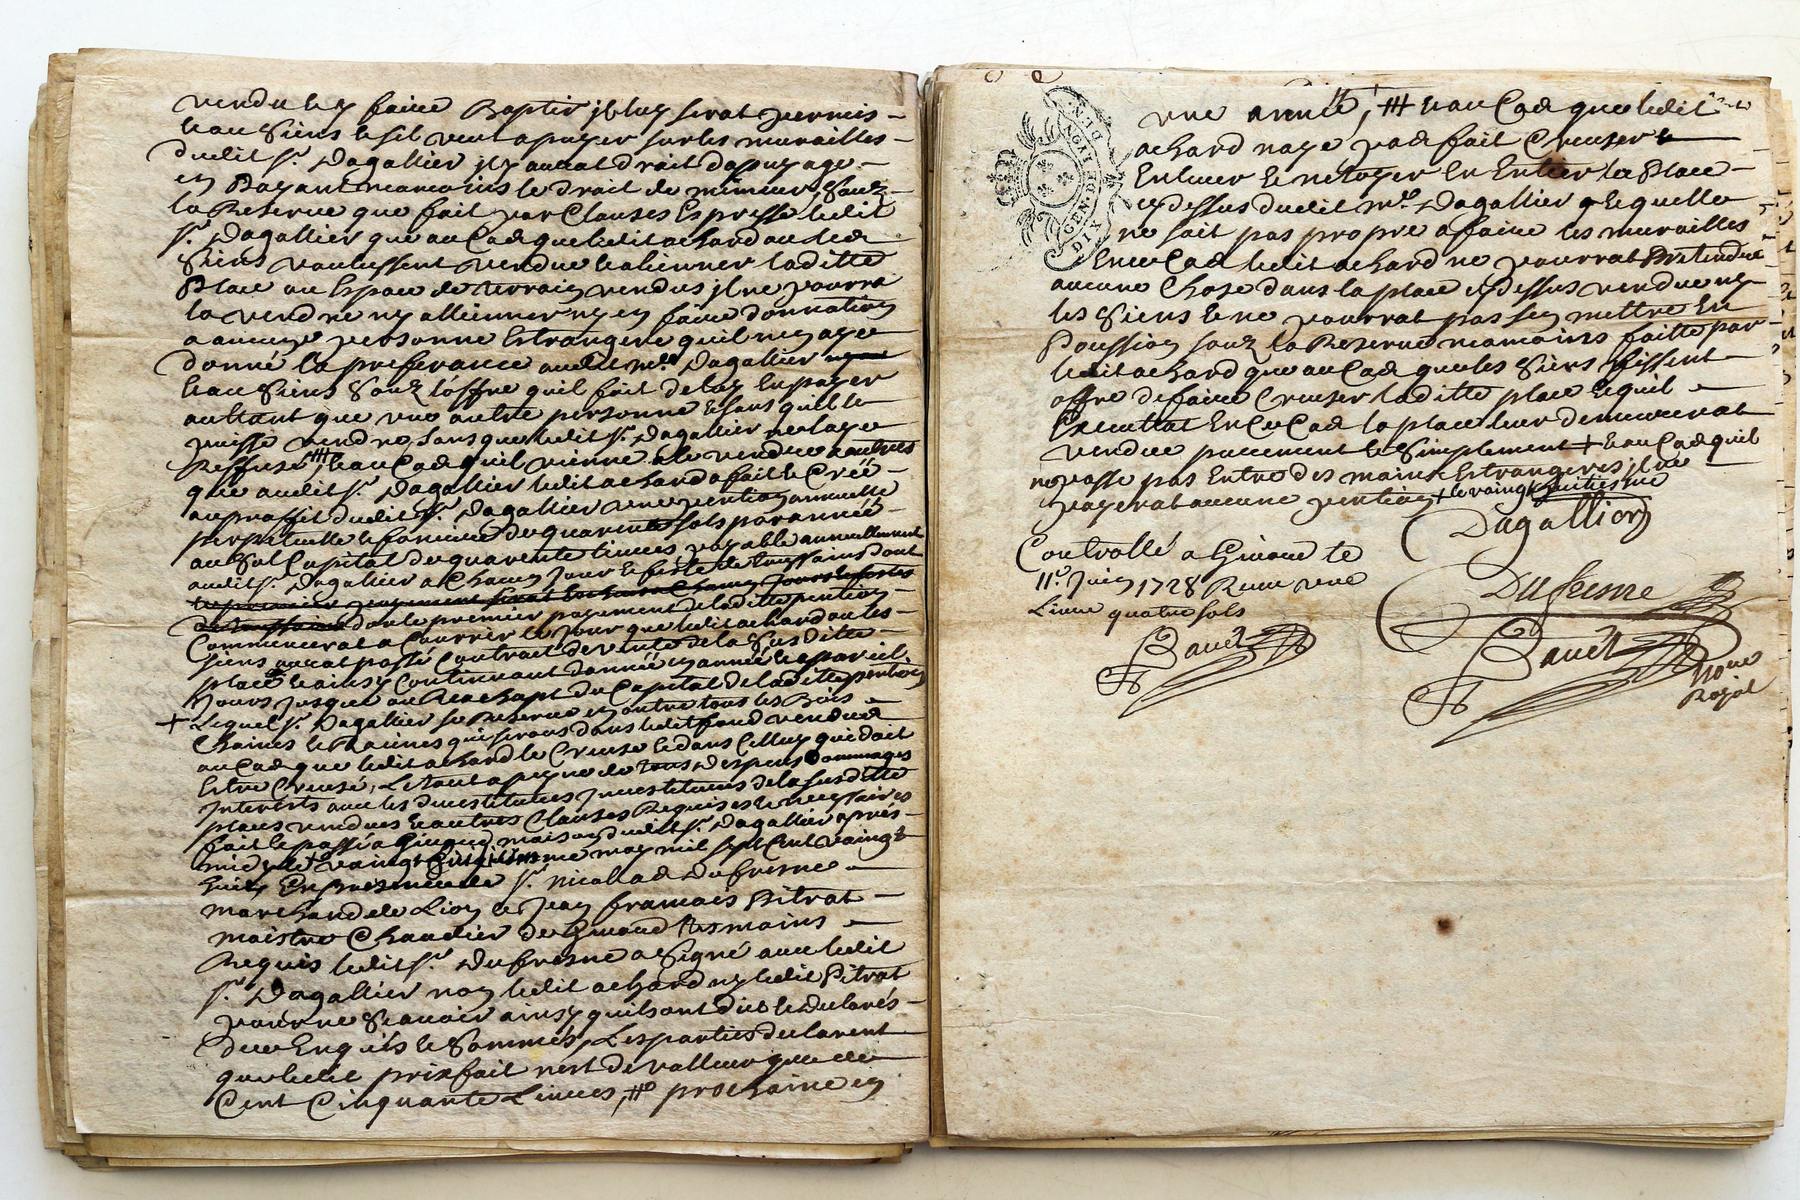 vendu et y faire Baptir il luy serat permis
et au siens et sil veut apuyer sur les murailles
dudit Sr. Dagallier il y aurat droit dapuyage
en Payant neamoins le droit de mimeur, sauz
la Reserve que fait par Clauses Espresse ledit
Sr. Dagallier que au Cas que ledit achard ou les
siens voulussent vendre et alienner ladite
Place ou Espace de terrain vendus il ne pourra
la vendre ny allienner ny en faire donnation
a aucune personne Estrangere quil ney aye
donné la preferance audit Mr. Dagallier
et au siens souz loffre quil fait de luy En payer
aultant que une aultre personne et sans quil le
puisse vendre, sans que ledit Sr. Dagallier ne laye
Reffusé, et au Cas quil vienne a le vendre a aultres
que audit Sr. Dagallier ledit achard a fait et Créé
au proffit dudit Sr. Dagallier une pention annuelle
perpetuelle et fonciere de quarente sols par année
au Sol Capital de quarente livres payable annuellement
audit Sr. Dagallier a Chacun Jour et feste de toussains dont
dont le premier payement de ladite pention
Commencerat a Courrir le Jour que ledit achard ou les
siens aurat passé Contrait de vente de la susdite
place et ainsy Continuant d'année en année et a pareil
Jours jusques au Reachapt du Capital de ladite pention
+ Lequel Sr. Dagallier se Reserve en outre tous les Bois
Chaines et Racines qui seront dans ledit fond vendue
au Cas que ledit achard le Creuse et dans Celluy qui doit
Estre Creusé, Le tout a peyne de tous despens dommages
Interests avec les devestitures Investitures de la susdite
place vendues et aultres Clauses Requises et necessaires
fait et passé a Givord maison dudit Sr. Dagallier apres
midy le vaingt mé may mil sept Cent vaingt
huit, En presence de Sr. nicollas Dufresne
marchand de Lion et Jean francois Pitrat
maistre Chaudier de Givord tesmoins
Requis ledit Sr. Dufresne a Signé avec ledit
Sr. Dagallier non ledit achard ny ledit Pitrat
pour ne Scavoir ainsy quils ont dit et declarés
deue Enquis et Sommés, Les parties declarent
que ledit prixfait nest de valleur que de
Cent Cinquante Livres, prochaine en
une année, et au Cas que ledit
achard naye pas fait Creuser
Enlever et netoyer En Entier la Place
cy dessus dudit Mr. Dagallier et quelle
ne soit pas propre a faire les murailles
En ce Cas ledit achard ne pourrat Pretendre
aucune Chose dans la place cy dessus vendue ny
les siens et ne pourrat pas sen mettre En
Poussion souz la Reserve neamoins faitte par
ledit achard que au Cas que les siens fissent
offre de faire Creuser ladite place et quil
Executtat En Ce Cas la place leur demeurerat
vendue purement et Simplement + et au Cas quil
ne passe pas Entre des mains Estrangeres il ne
payerat aucune pention + le vaingt huitiesme
Dagallier
Controllé a Givord le
11e. Juin 1728 Receu une
Livre quatre sols
Dufresne
Bauet
Bauet
nore
Royal
GEN. DE LION
DIX DEN.